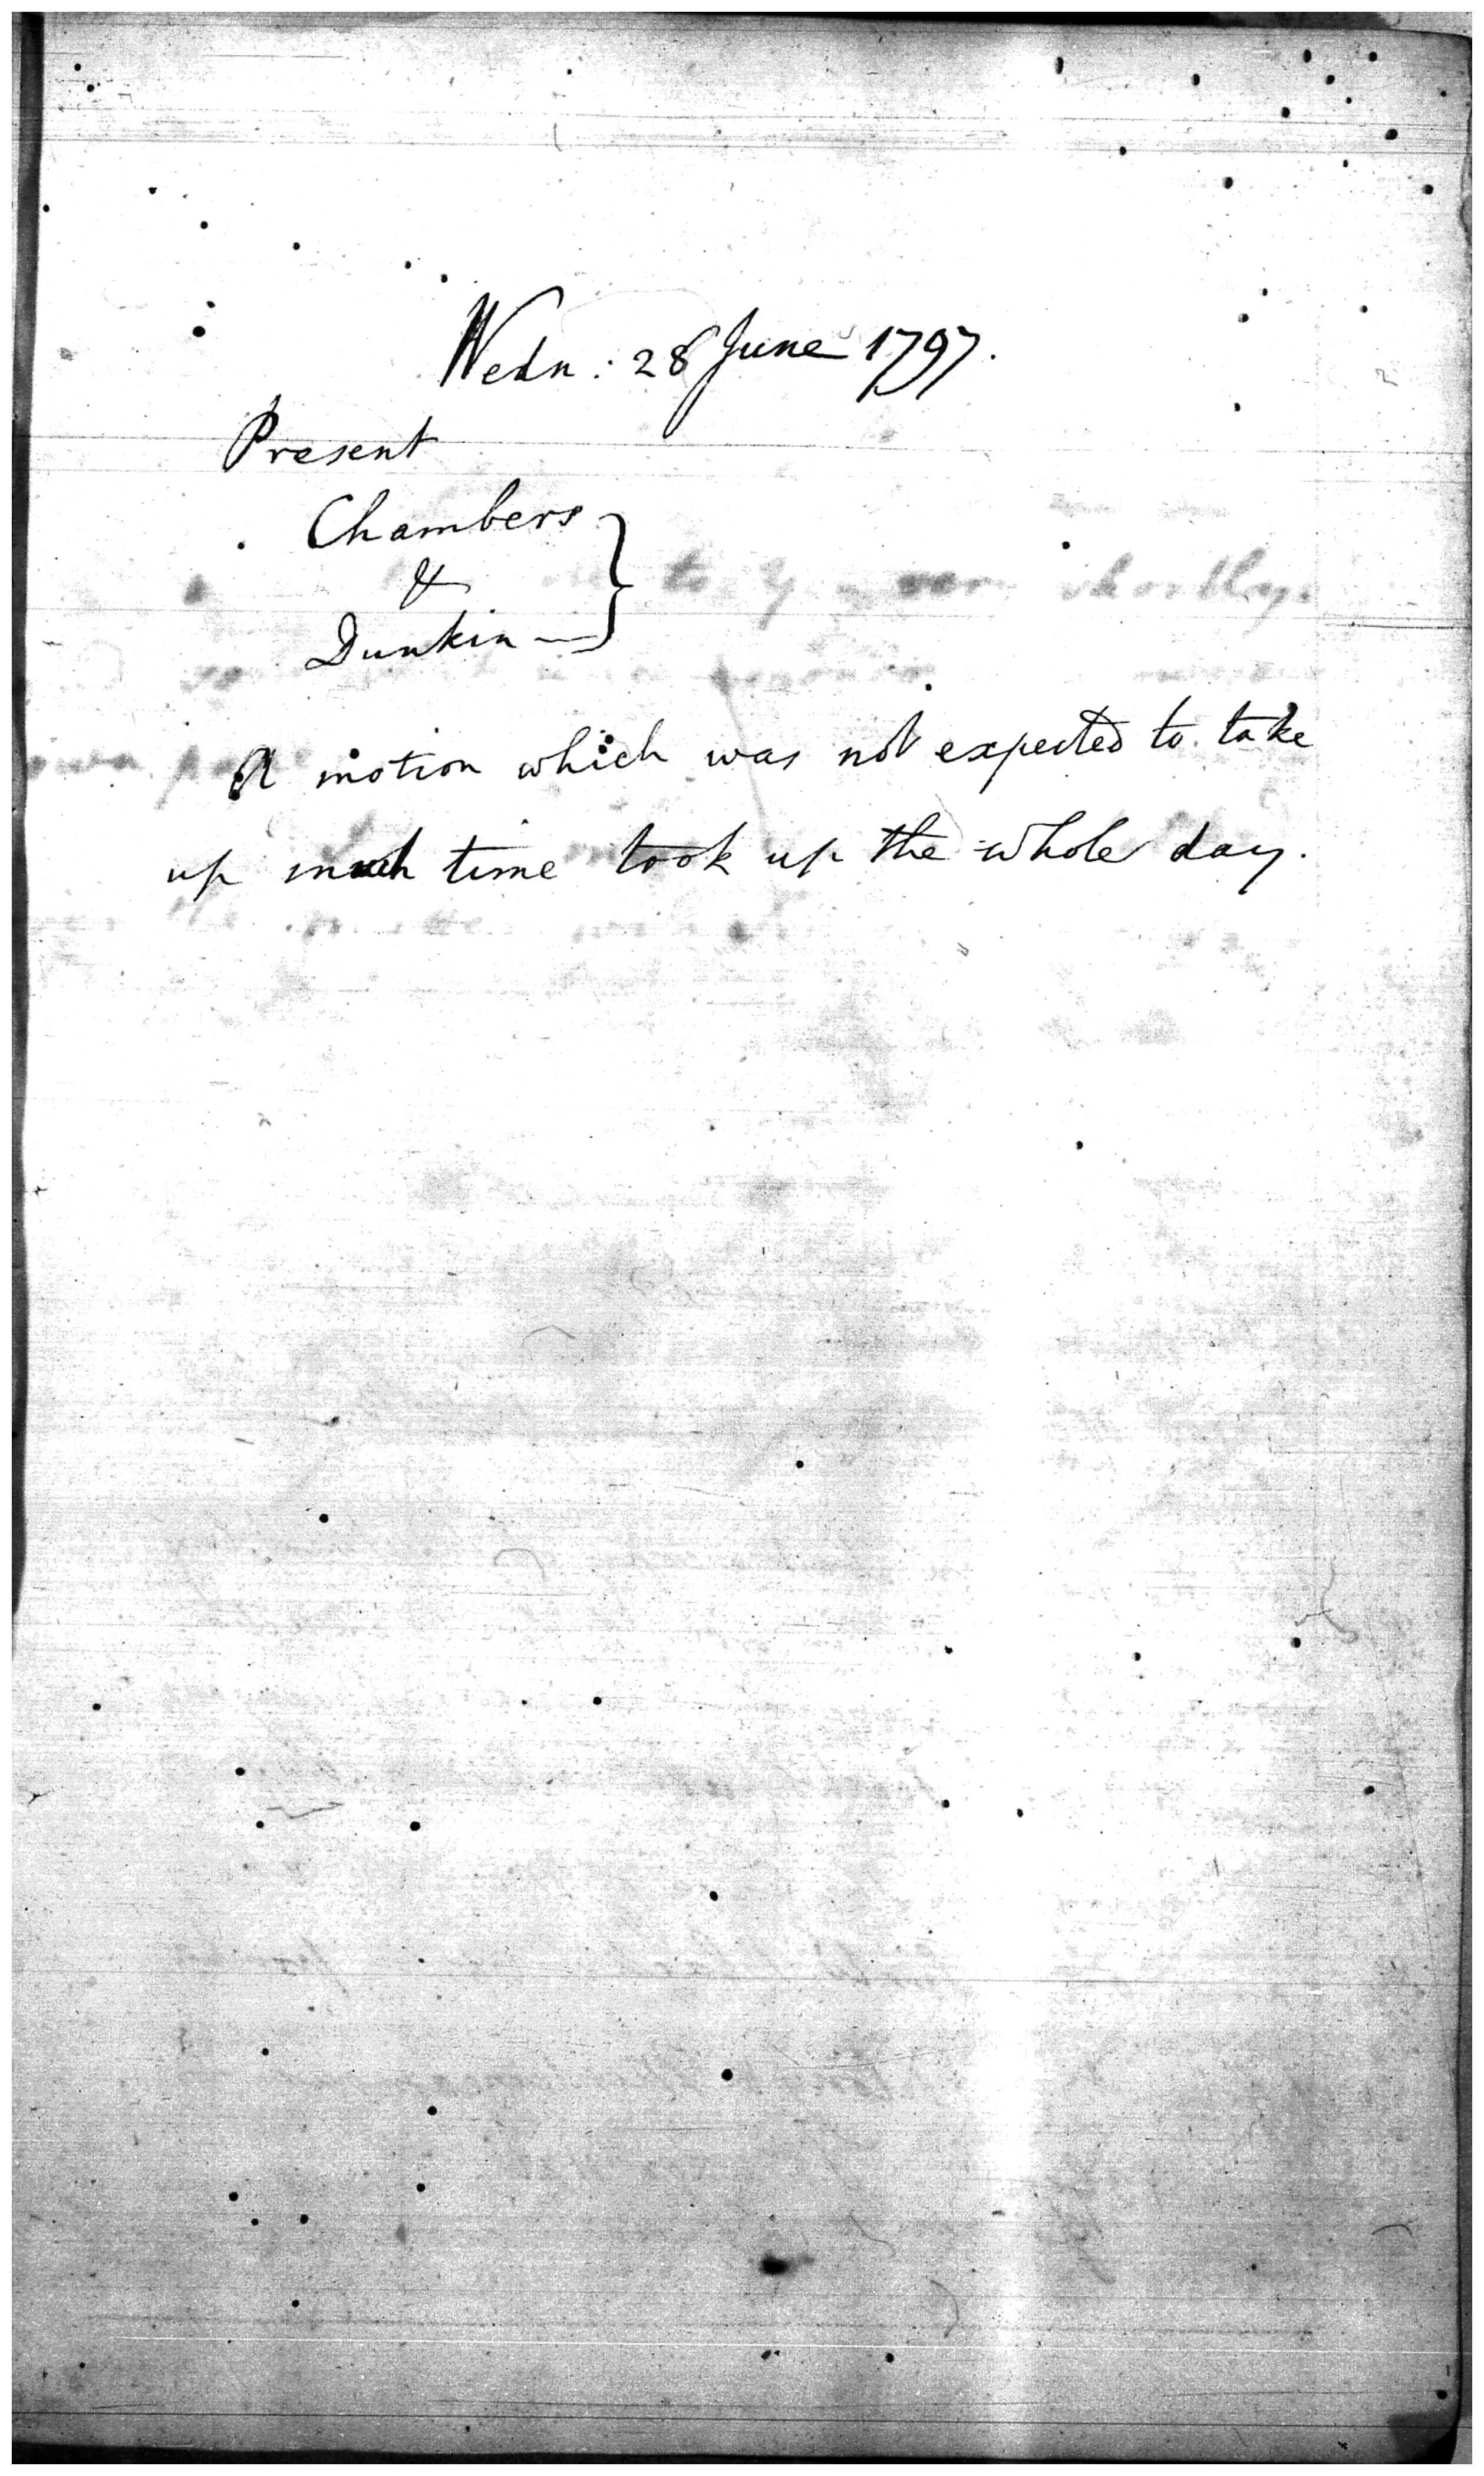 Wedn: 28 June 1797.
Present
Chambers
&
Dunkin —
A motion which was not expected to take
up much time took up the whole day.